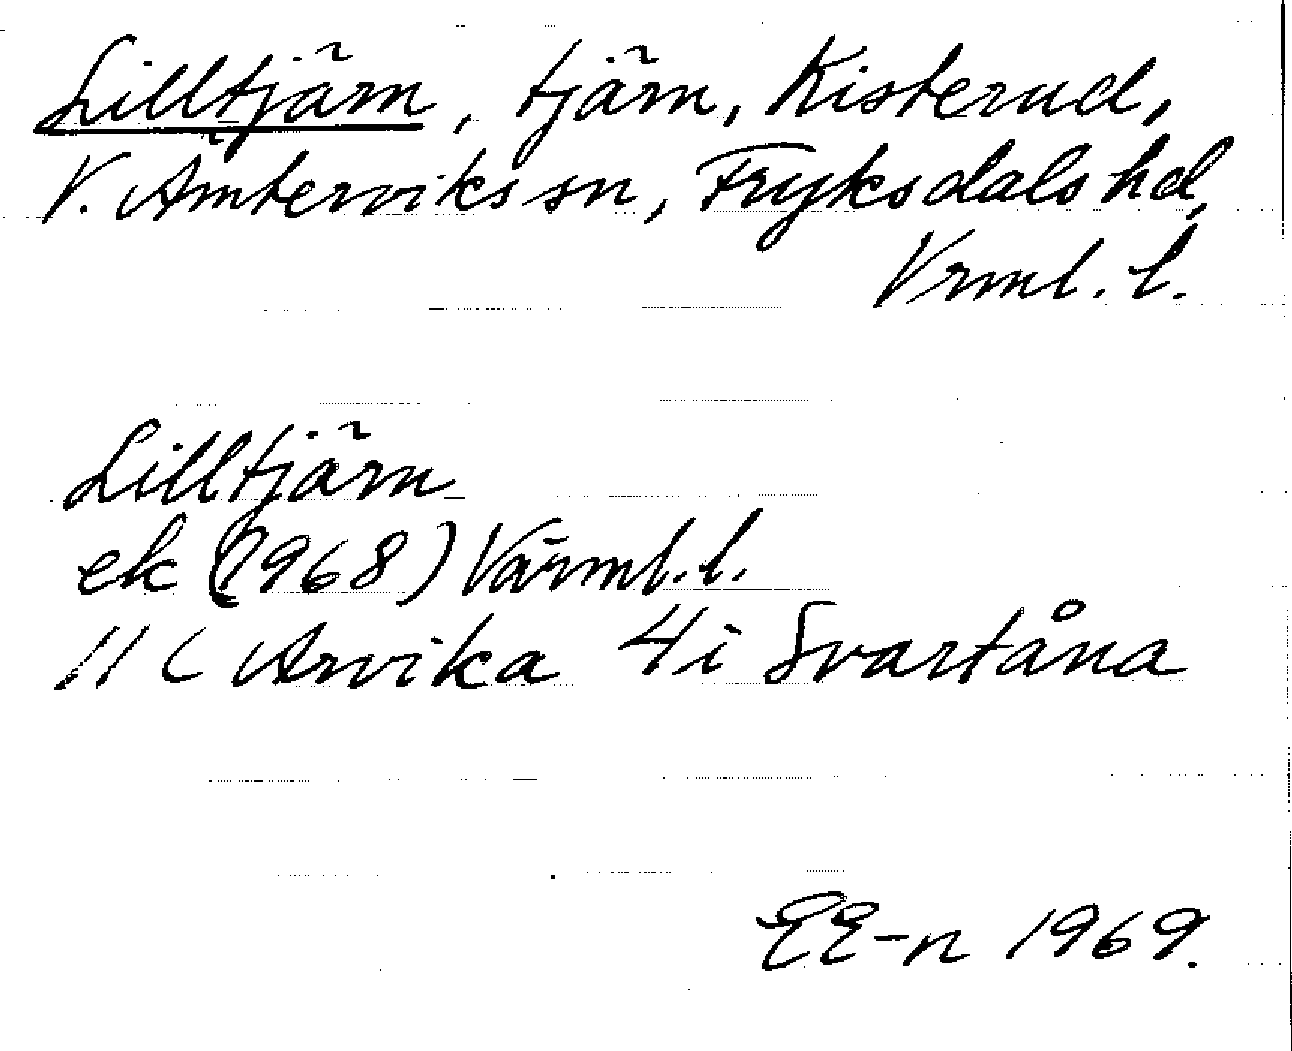 Lilltjärn, tjärn, Kisterud,
V. Ämterviks sn, Fryksdals hd,
Vrml. l.
Lilltjärn
ek (1968) Värml. l.
11 C Arvika 4i Svartåna
EE-n 1969.